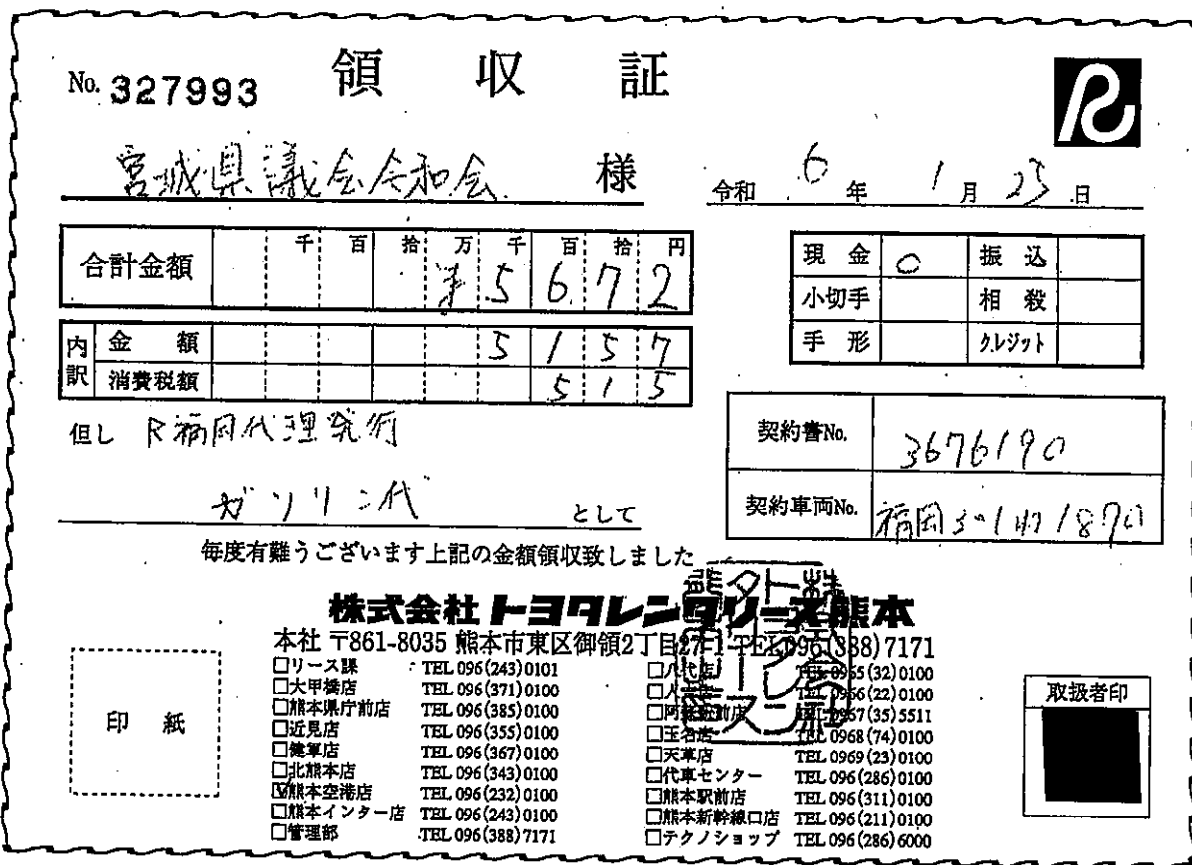 No. 327993
領収証
R
宮城県議会令和会 様
令和 6 年 1 月 25 日
合計金額 千 百 拾 万 千 百 拾 円
¥5672
内訳
金額 5157
消費税額 515
現金 ○ 振込
小切手 相殺
手形 クレジット
但し R福岡代理発行
ガソリン代 として
契約書No. 3676190
契約車両No. 福岡 1870
毎度有難うございます上記の金額領収致しました
株式会社トヨタレンタリース熊本
本社 〒861-8035 熊本市東区御領2丁目27-1 TEL096(388)7171
□リース課 TEL 096(243)0101
□大甲橋店 TEL 096(371)0100
□熊本県庁前店 TEL 096(385)0100
□近見店 TEL 096(355)0100
□健軍店 TEL 096(367)0100
□北熊本店 TEL 096(343)0100
☑熊本空港店 TEL 096(232)0100
□熊本インター店 TEL 096(243)0100
□管理部 TEL 096(388)7171
□八代店 TEL 0965(32)0100
□人吉店 TEL 0966(22)0100
□阿蘇駅前店 TEL 0967(35)5511
□玉名店 TEL 0968(74)0100
□天草店 TEL 0969(23)0100
□代車センター TEL 096(286)0100
□熊本駅前店 TEL 096(311)0100
□熊本新幹線口店 TEL 096(211)0100
□テクノショップ TEL 096(286)6000
印紙
取扱者印